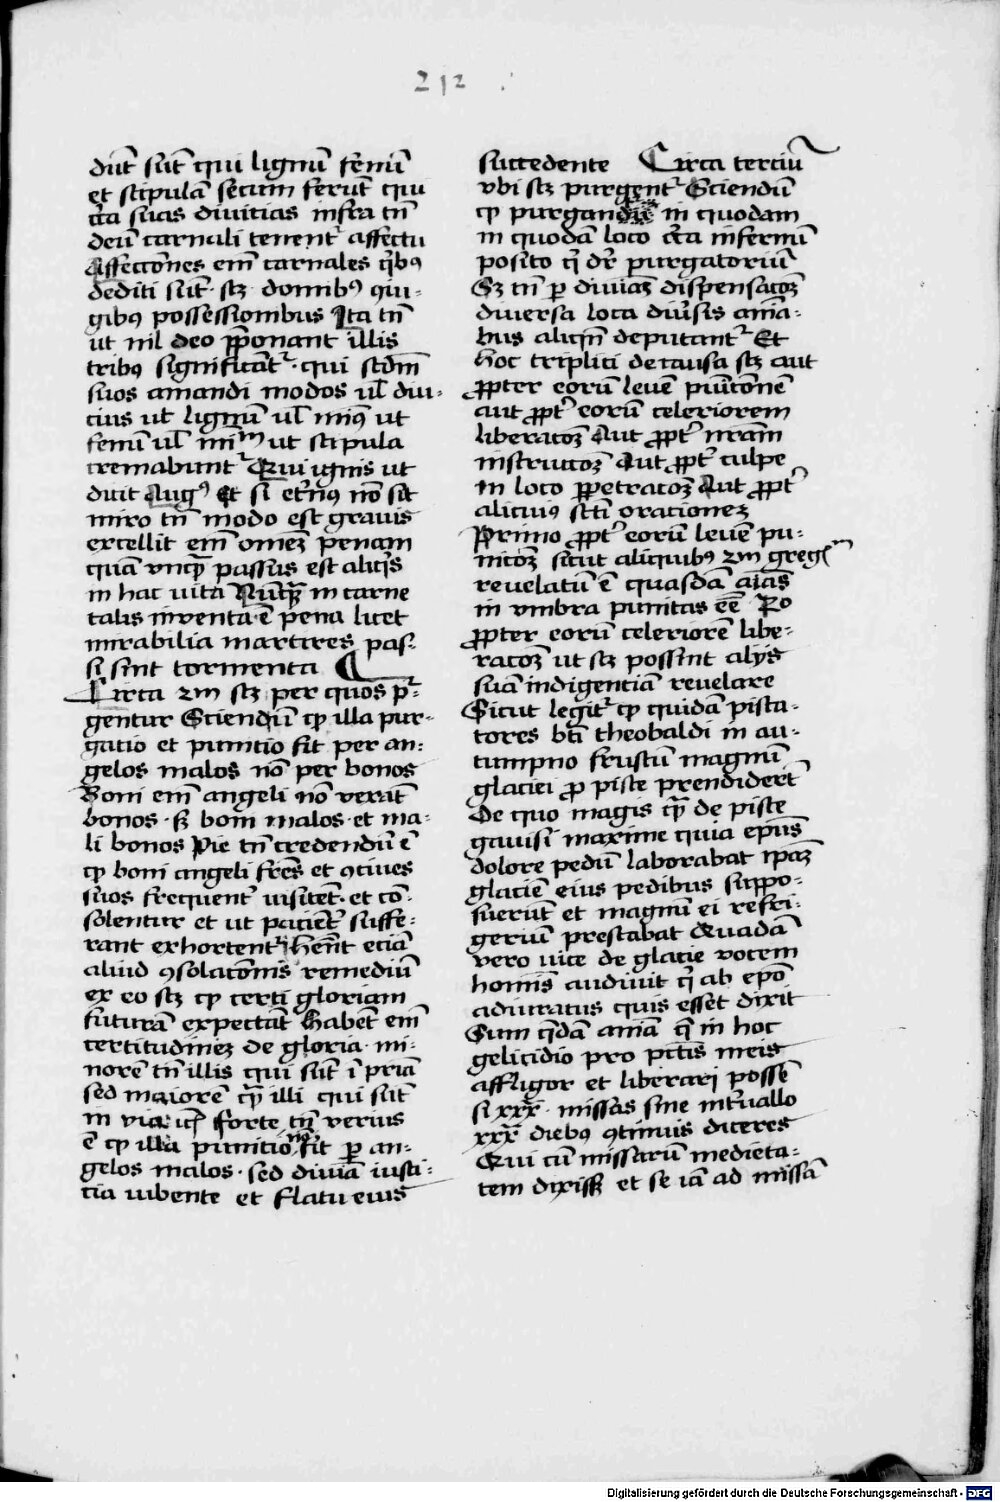 212
dūt sūt qui lignū fenū
et stipulā secum ferūt qui
cͣca suas divitias infra tn̄
deū carnali tenent᷑ affectu
Affectōnes em̄ carnales qͥbꝰ
dediti sūt · scꝫ domibꝰ ꝯiu-
gibꝰ possessionibus Ita tn̄
ut nil deo p̄ponant illis
tribꝰ significāt᷑ · qui scd̄m
suos amandi modos ul̄ diu-
cius ut lignū ul̄ minꝰ ut
fenū ul̄ mīꝰ ut stipula
cremabunt᷑ Qui ignis ut
dicit Augꝰ Et si et᷑nꝰ nō sit
miro tn̄ modo est gravis
excellit em̄ omēꝫ penam
quā vnqͣ passus est aliqͥs
in hac uita Nūqͣ in carne
talis inventa ē pena licet
mirabilia martires pas-
si sint tormenta
Circa 2m scꝫ per quos pͬ-
gentur Sciendū qꝫ illa pur-
gatio et punitio fit per an-
gelos malos nō per bonos
Boni em̄ angeli nō vexāt
bonos · sꝫ boni malos · et ma-
li bonos Pie tn̄ credendū ē
qꝫ boni angeli fr̄es et ꝯcives
suos frequent᷑ visitēt · et cō-
solentur et ut pacient᷑ suffe-
rant exhortent᷑ Hēnt eciā
aliud ꝯsolatōnis remediū
ex eo scꝫ qꝫ certi gloriam
futurā expectāt Habēt em̄
certitudinēꝫ de gloria · mi-
norē tn̄ illis qui sūt ī pr̄ia
sed maiorē qͣ illi qui sūt
in via ul̄ forte tn̄ verius
ē qꝫ illa punitio nō fit ꝑ an-
gelos malos · sed divīa iusti-
cia iubente et flatu eius
succedente Circa terciū
vbi scꝫ purgent᷑ Sciendū
qꝫ purgandi in quodam
in quodā loco cͣca infernū
posito qͥ dr̄ purgatoriū
Sꝫ tn̄ ꝑ diuiāꝫ dispensacōꝫ
diversa loca diūsis anīa-
bus aliqn̄ deputant᷑ Et
hoc tripliti de causa scꝫ aut
ꝓpter eorū levē puītonē
aut ꝓpt᷑ eorū celeriorem
liberacōꝫ Aut ꝓpt᷑ nr̄am
instructōꝫ Aut ꝓpt᷑ culpe
in loco ꝑpetracōꝫ Aut ꝓpt᷑
alicuiꝰ sc̄ti orationeꝫ
Primo ꝓpt᷑ eorū levē pu-
nicōꝫ sicut aliquibꝰ 2m gregͫ
revelatū ē quasdā aīas
in vmbra punitas eē̄ 2o
ꝓpter eorū celeriorē libe-
racōꝫ ut scꝫ possint alijs
suā indigentiā revelare
Sicut legit᷑ qꝫ quidā pisca-
tores bt̄i theobaldi in au-
tumpno frustū magnū
glaciei ꝓ pisce prendider̄t
De quo magis qͣ de pisce
gavisi maxime quia ep̄us
dolore pedū laborabat ip̄aꝫ
glaciē eius pedibus suppo-
suerūt et magnū ei refri-
geriū prestabat Quadā
vero vice de glacie vocem
hominis audiuit qͥ ab ep̄o
adiuratus quis esset dixit
Sum qͥdā aīma qͥ in hoc
gelicidio pro pctīs meis
affligor et liberari possē
si xxx · missas sine int᷑uallo
xxx diebꝰ ꝯtinuis diceres
Qui cū missarū medieta-
tem dixissꝫ et se iā ad missā
Digitalisierung gefördert durch die Deutsche Forschungsgemeinschaft - DFG